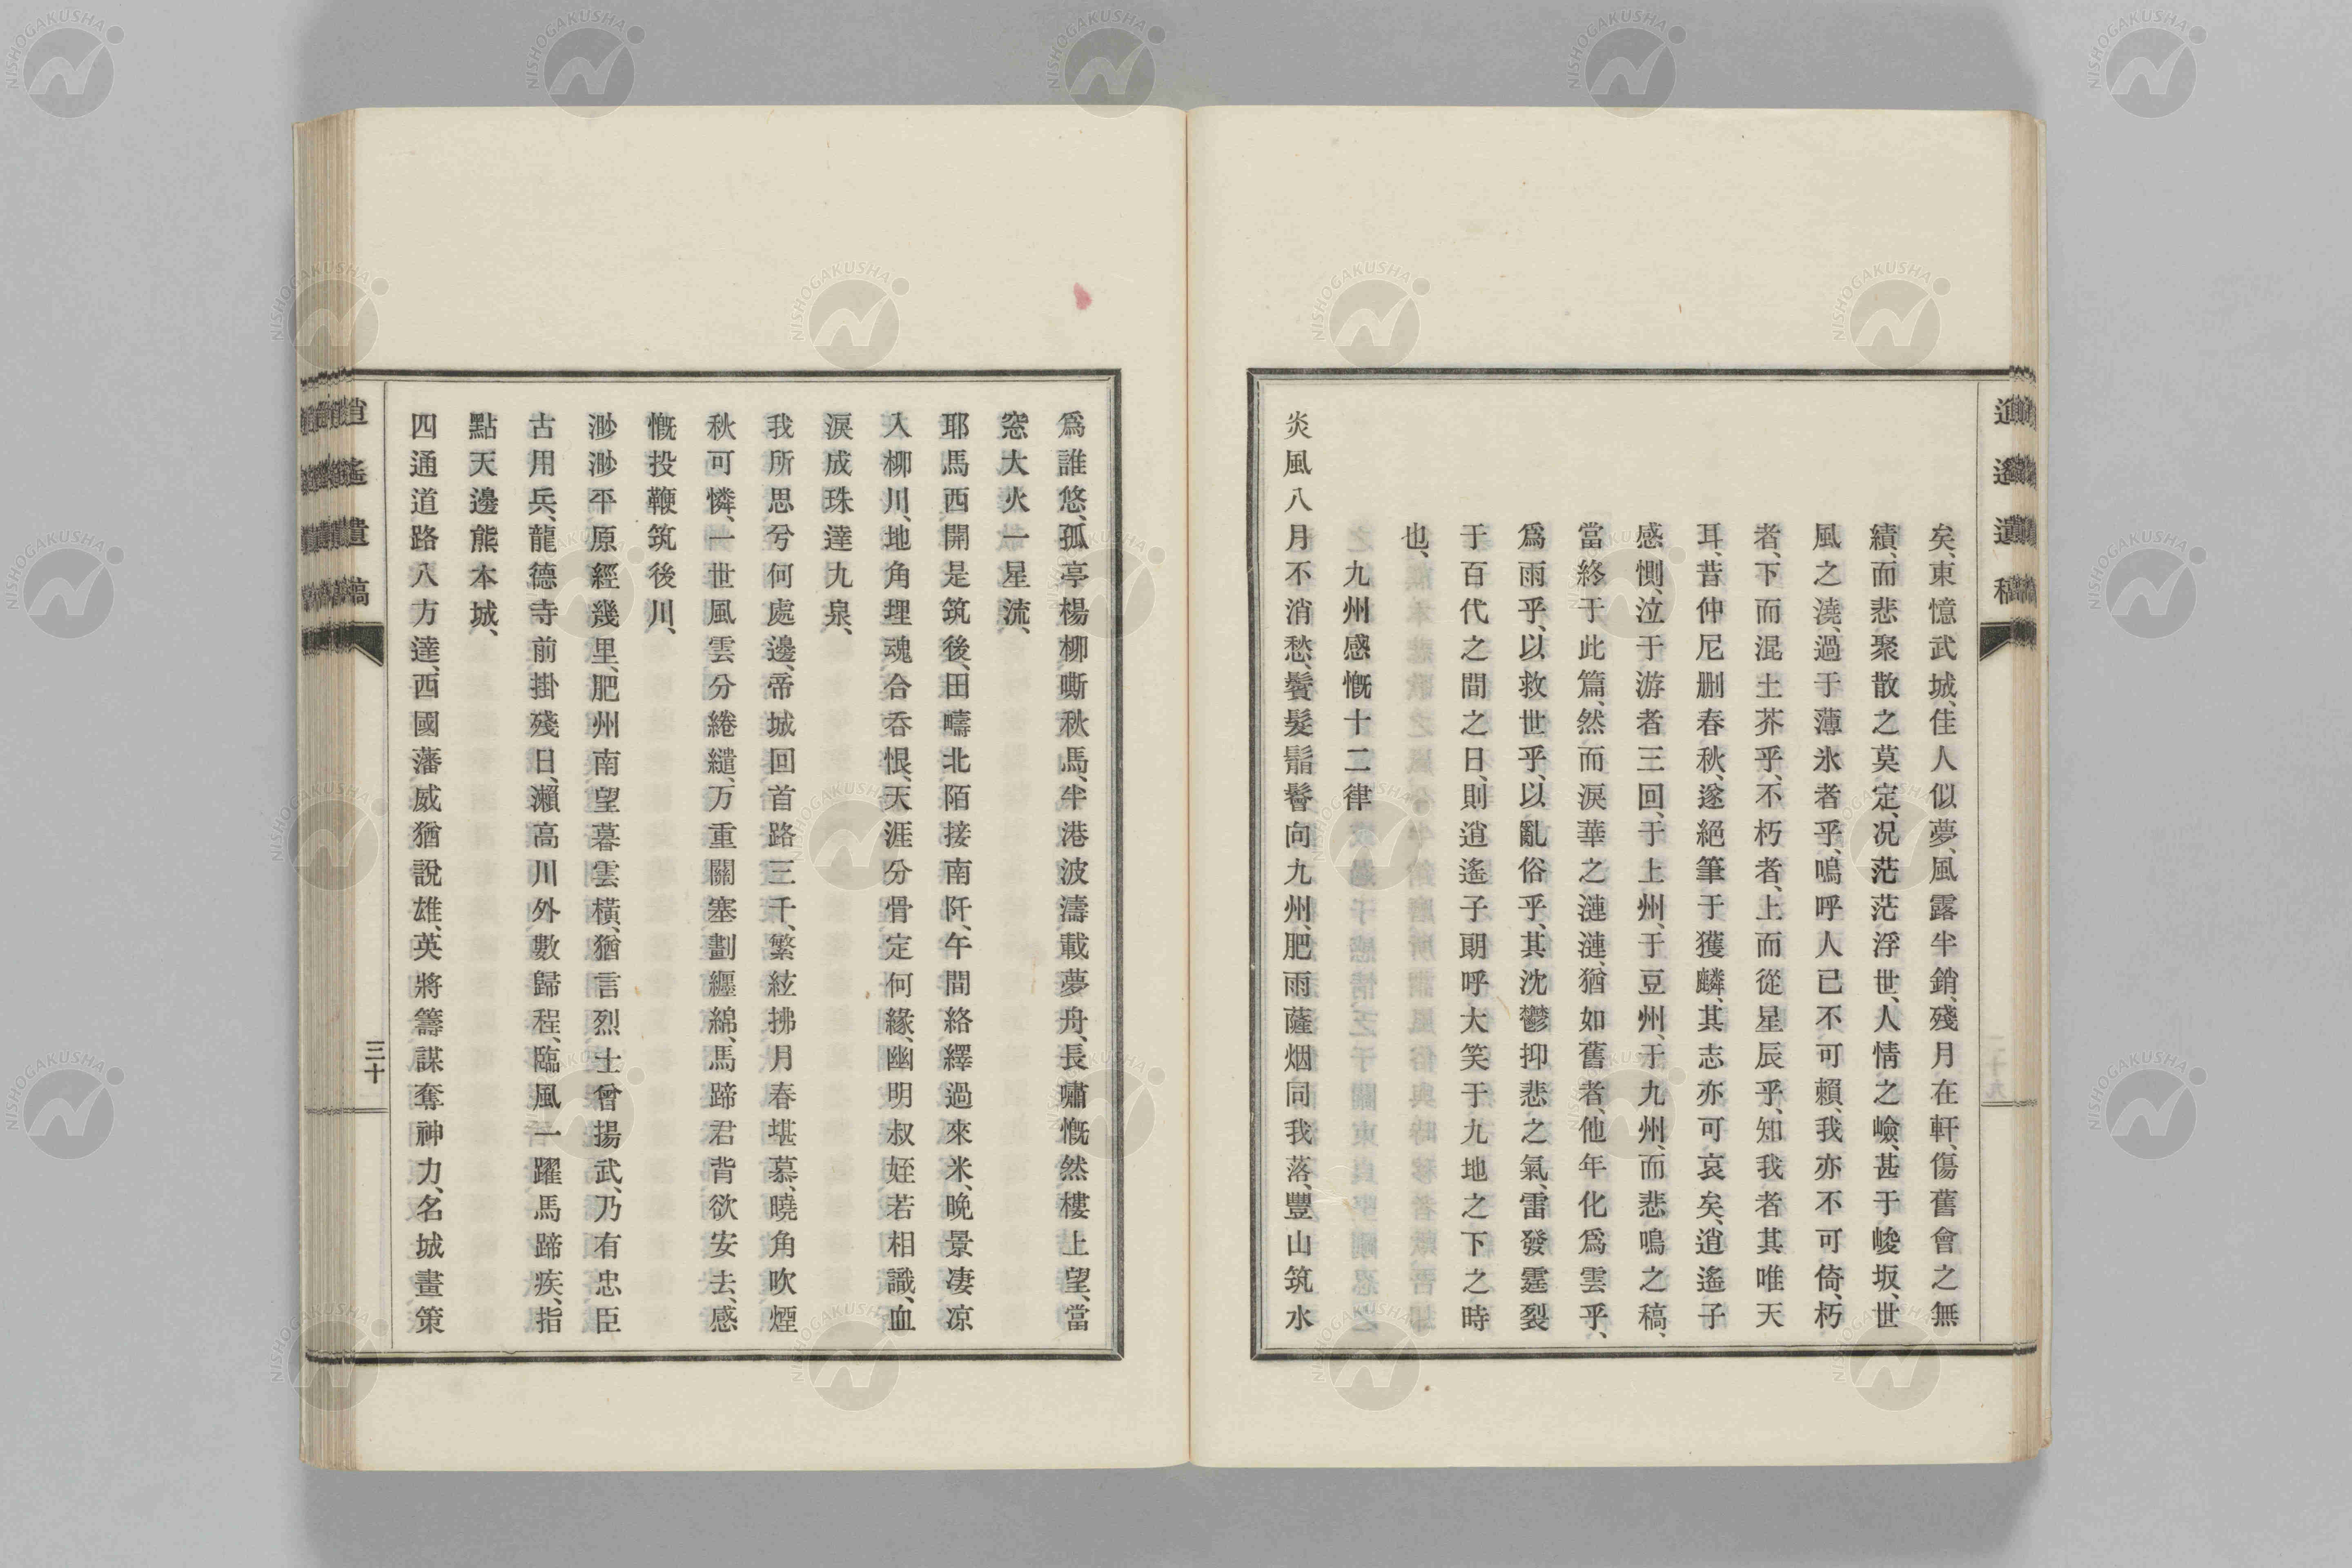 逍遙遺稿
矣、東憶武城、佳人似夢、風露半銷、殘月在軒、傷舊會之無
績、而悲聚散之莫定、况茫茫浮世、人情之嶮、甚于峻坂、世
風之澆、過于薄氷者乎、嗚呼人已不可賴、我亦不可倚、朽
者、下而混土芥乎、不朽者、上而從星辰乎、知我者其唯天
耳、昔仲尼删春秋、遂絕筆于獲麟、其志亦可哀矣、逍遙子
感惻、泣于游者三回、于上州、于豆州、于九州、而悲鳴之稿、
當終于此篇、然而淚華之漣漣、猶如舊者、他年化爲雲乎、
爲雨乎、以救世乎、以亂俗乎、其沈鬱抑悲之氣、雷發霆裂
于百代之間之日、則逍遙子朗呼大笑于九地之下之時
也、
九州感慨十二律
炎風八月不消愁、鬢髮鬅鬙向九州、肥雨薩烟同我落、豐山筑水
爲誰悠、孤亭楊柳嘶秋馬、半港波濤載夢舟、長嘯慨然樓上望、當
窓大火一星流、
耶馬西開是筑後、田疇北陌接南阡、午間絡繹過來米、晚景凄凉
入柳川、地角埋魂合吞恨、天涯分骨定何緣、幽明叔姪若相識、血
淚成珠達九泉、
我所思兮何處邊、帝城回首路三千、繁絃拂月春堪慕、曉角吹煙
秋可憐、一世風雲分綣繾、万重關塞劃纒綿、馬蹄君背欲安去、感
慨投鞭筑後川、
渺渺平原經幾里、肥州南望暮雲橫、猶言烈士曾揚武、乃有忠臣
古用兵、龍德寺前掛殘日、瀨高川外數歸程、臨風一躍馬蹄疾、指
點天邊熊本城、
四通道路八方達、西國藩威猶說雄、英將籌謀奪神力、名城畫策
逍遙遺稿
三十